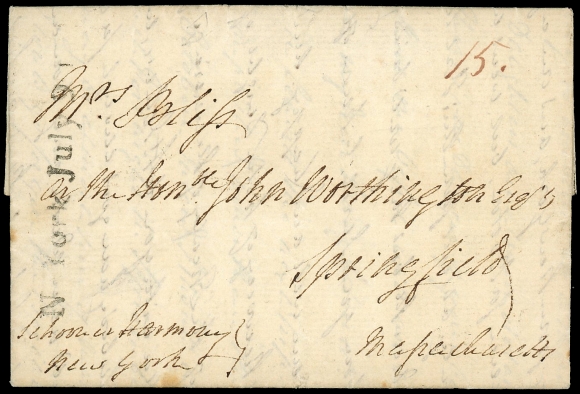 15.
Mrs Bliss
at the Honble John Worthington Esqr
Springfield
Massachusetts
Schooner Harmony
New York
N. York July